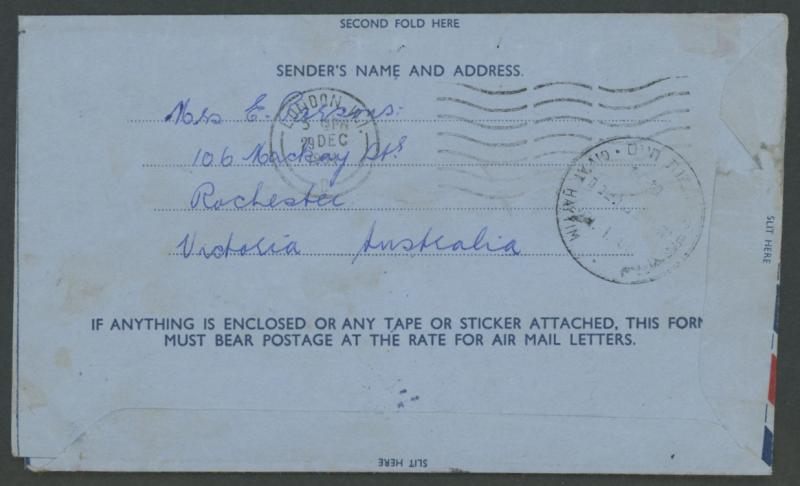 SECOND FOLD HERE
SENDER'S NAME AND ADDRESS.
Mrs E. Parsons.
106 Mackay St.
Rochester
Victoria Australia
LONDON W.1.
29 DEC
GIVAT HAYIM
SLIT HERE
IF ANYTHING IS ENCLOSED OR ANY TAPE OR STICKER ATTACHED, THIS FORM
MUST BEAR POSTAGE AT THE RATE FOR AIR MAIL LETTERS.
SLIT HERE